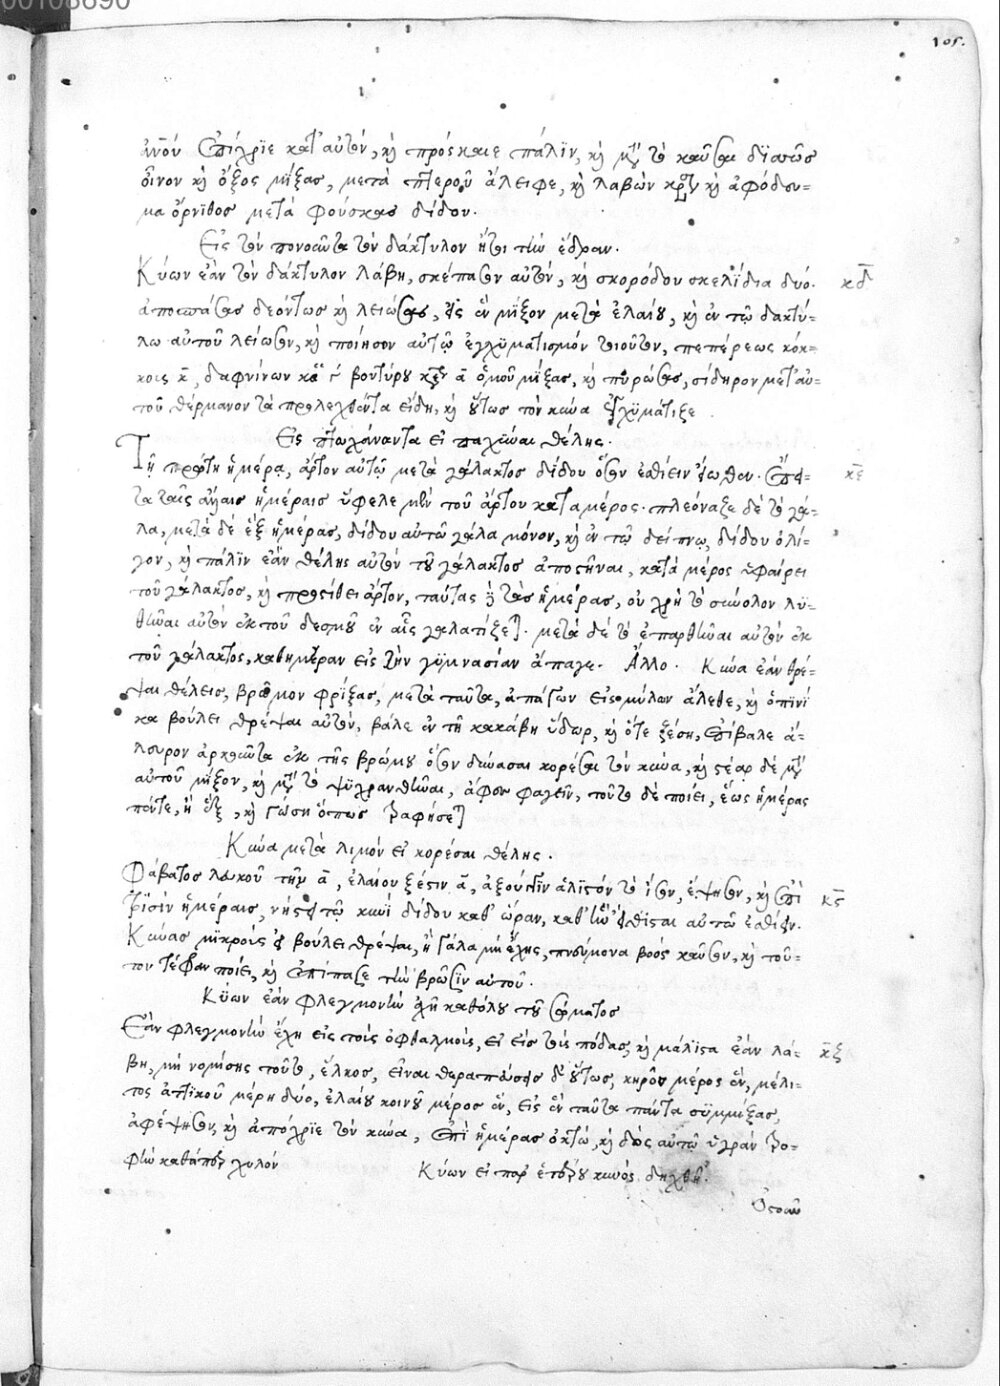 00108690
105.
ἐπίχριε κατ' αὐτόν, κὴ πρόσκαιε πάλϊν, κὴ μτ τὸ καῦσαι δϊαπῶς
οἶνον κὴ ὄξος μίξας, μετὰ πτεροῦ ἄλειφε, κὴ λαβὼν κὴ ἀφόδευ-
μα ὄρνϊθος μετὰ φούσκας δίδου.
Εἰς τὸν πονοῦντα τὸν δάκτυλον ἤτοι τὴν ἕδραν.
Κύων ἐὰν τὸν δάκτυλον λάβη, σκέπασον αὐτόν, κὴ σκορόδου σκελίδια δύο. κδ
ἀποσπάσας δεόντως κὴ λειώσας, εἰς ἓν μῖξον μετὰ ἐλαίου, κὴ ἐν τῷ δακτύ-
λω αὐτοῦ λείωσον, κὴ ποίησον αὐτῷ ἐγχϋματισμόν τοιοῦτον, πεπέρεως κόκ-
κοις κ, δαφνίνων βουτύρου α ὁμοῦ μίξας, κὴ πυρώσας, σίδηρον μετ' αὐ-
τοῦ θέρμανον τὰ προλεχθέντα εἴδη, κὴ οὕτως τὸν κύνα ἐγχϋμάτιζε
Εἰς εἰ παχῦναι θέλης.
Τῆ πρώτη ἡμέρα, ἄρτον αὐτῷ μετὰ γάλακτος δίδου ὅσον ἐσθίειν εἴωθεν. ἔπει- κε
τα ταῖς ἄλλαις ἡμέραις ὕφελε μὲν τοῦ ἄρτου κατὰ μέρος. πλεόναζε δὲ τὸ γά-
λα, μετὰ δὲ ἓξ ἡμέρας, δίδου αὐτῶ γάλα μόνον, κὴ ἐν τῷ δείπνῳ, δίδου ὀλί-
γον, κὴ πάλϊν ἐὰν θέλης αὐτὸν τοῦ γάλακτος ἀποστῆναι, κατὰ μέρος ὑφαίρει
τοῦ γάλακτος, κὴ προστίθει ἄρτον, ταύτας δὲ τὰς ἡμέρας, οὐ χρὴ τὸ σύνολον λϋ-
θῆναι αὐτὸν ἐκ τοῦ δεσμοῦ ἐν αἷς γαλατίζεται. μετὰ δὲ τὸ ἐπαρθῆναι αὐτὸν ἐκ
τοῦ γάλακτος, καθημέραν εἰς τὴν γϋμνασίαν ἄπαγε. Ἄλλο. Κύνα ἐὰν θρέ-
ψαι θέλεις, βρῶμον φρίξας, μετὰ ταῦτα, ἀπάγων εἰς μύλων ἄλεθε, κὴ ὁπϊνί-
κα βούλει θρέψαι αὐτόν, βάλε ἐν τῆ κακάβη ὕδωρ, κὴ ὅτε ζέση, ἐπίβαλε ἄ-
λευρον ἀρκοῦντα ἐκ τῆς βρώμου ὅσον δύνασαι κορέσαι τὸν κύνα, κὴ στέαρ δὲ μτ
αὐτοῦ μῖξον, κὴ μτ τὸ ψϋχρανθῆναι, ἄφες φαγεῖν, τοῦτο δὲ ποίει, ἕως ἡμέρας
πέντε, ἢ ἕξ, κὴ γνώση ὅπως τραφήσεται
Κύνα μετὰ λιμὸν εἰ κορέσαι θέλης.
λευκοῦ α, ἐλαίου ξέστην α, ἀξούγγιν ἀλιστόν τὸ ἴσον, ἕψησον, κὴ ἐπὶ κς
τρϊσὶν ἡμέραις, νήστει τῷ κυνὶ δίδου καθ' ὥραν, καθ' ἣν εἴθισται αὐτῶ ἐσθίειν.
Κύνας μϊκροὺς εἰ βούλει θρέψαι, ἢ γάλα μὴ ἔχης, πνεύμονα βοὸς καῦσον, κὴ τοῦ-
τον τέφραν ποίει, κὴ ἐπίπασσε τὴν βρῶσϊν αὐτοῦ.
Κύων ἐὰν φλεγμονὴν ἔχη καθόλου τοῦ σώματος
Ἐὰν φλεγμονὴν ἔχη εἰς τοὺς ὀφθαλμούς, εἰ εἰς τοὺς πόδας, κὴ μάλϊστα ἐὰν λά- κζ
βη, μὴ νομίσης τοῦτο, ἕλκος, εἶναι θεραπεύσεις δὲ οὕτως, κηροῦ μέρος ἕν, μέλι-
τος ἀττϊκοῦ μέρη δύο, ἐλαίου κοινοῦ μέρος ἕν, εἰς ἓν ταῦτα πάντα σϋμμίξας,
ἀφέψησον, κὴ ἀπόχρϊε τὸν κύνα, ἐπὶ ἡμέρας ὀκτώ, κὴ δὸς αὐτῷ ὑγρὰν τρο-
φὴν καθάπερ χυλόν
Κύων εἰ παρ' ἑτέρου κυνὸς δηχθῆ.
Ὀστοῦν